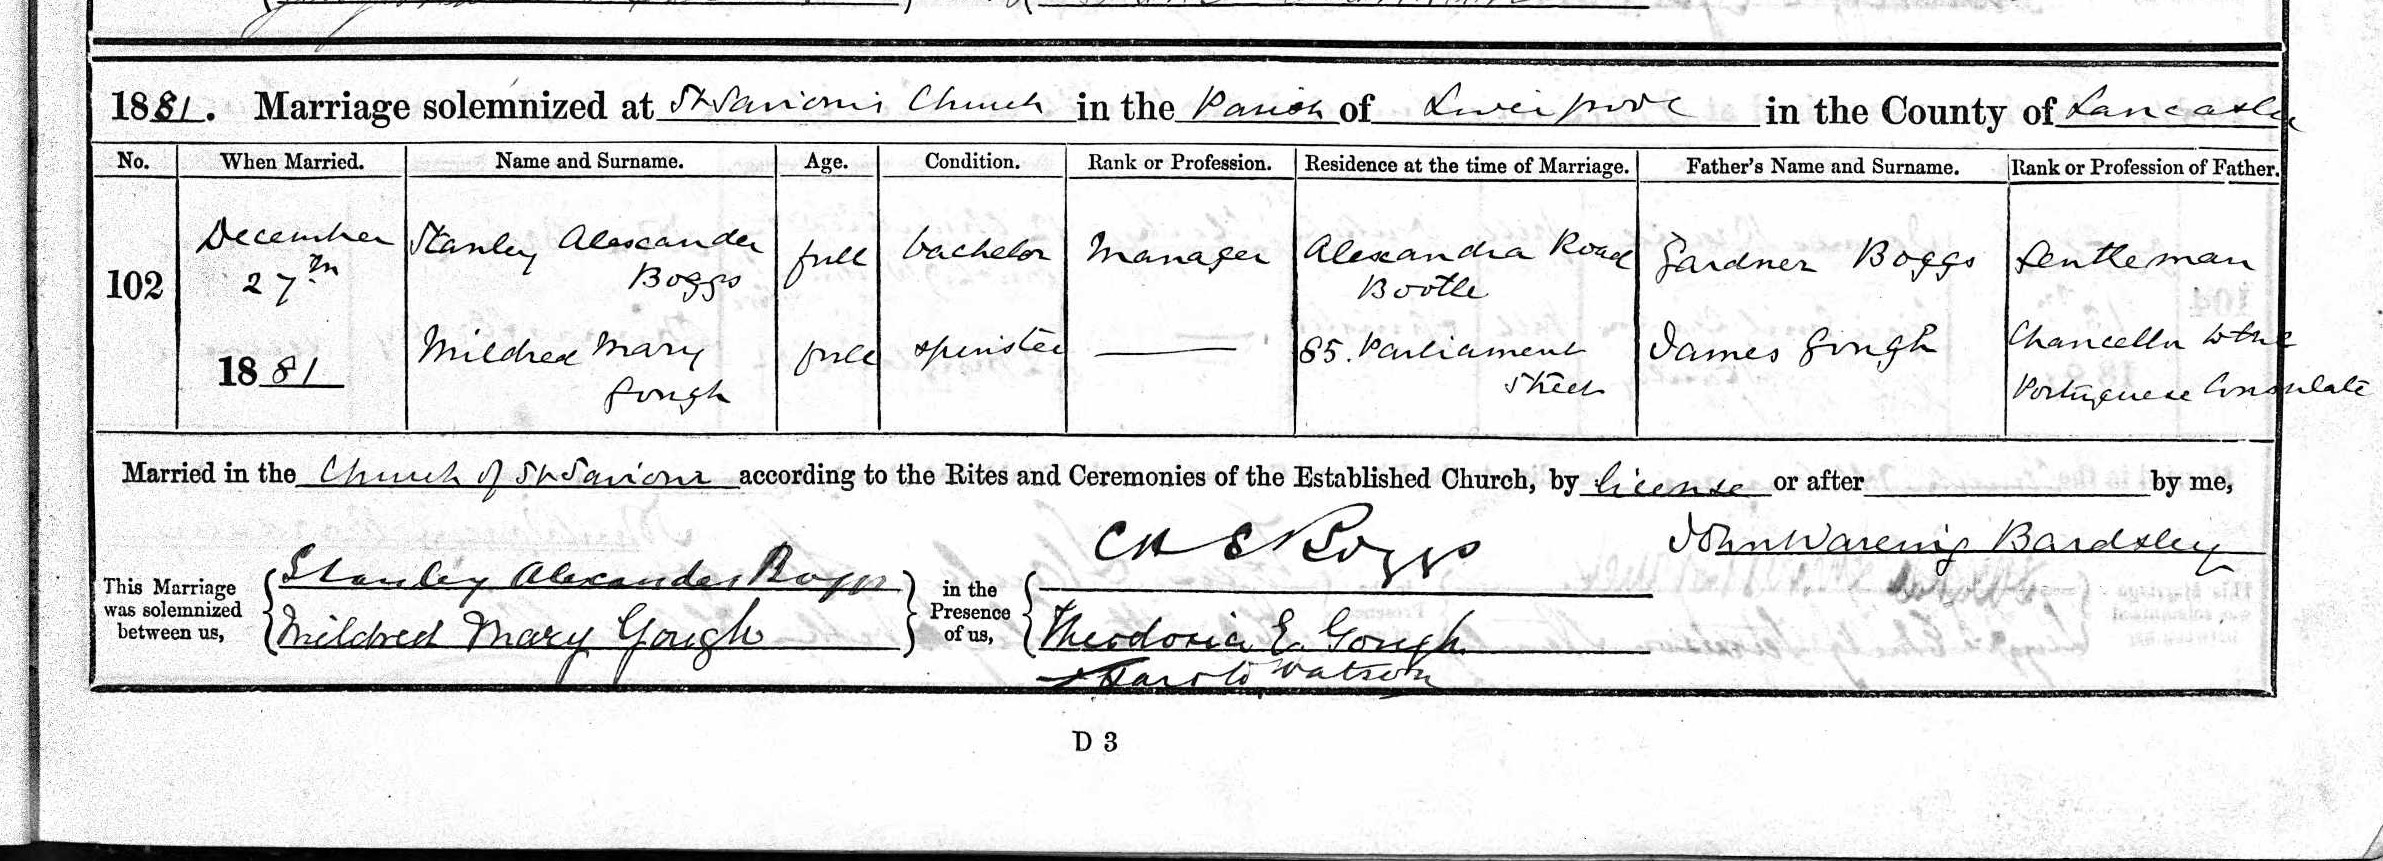 1881. Marriage solemnized at St Saviour's Church in the Parish of Liverpool in the County of Lancaster
No. When Married. Name and Surname. Age. Condition. Rank or Profession. Residence at the time of Marriage. Father's Name and Surname. Rank or Profession of Father.
102
December
27th
1881
Stanley Alexander
Boggs
full
bachelor
Manager
Alexandra Road
Bootle
Gardner Boggs
Gentleman
Mildred Mary
Gough
full
spinster
85. Parliament
Street
James Gough
Chancellor to the
Portuguese Consulate
Married in the Church of St Saviour according to the Rites and Ceremonies of the Established Church, by license or after by me,
John Wareing Bardsley
This Marriage
was solemnized
between us,
Stanley Alexander Boggs
Mildred Mary Gough
in the
Presence
of us,
C H E Boggs
Theodosia E. Gough
Harold Watson
D 3